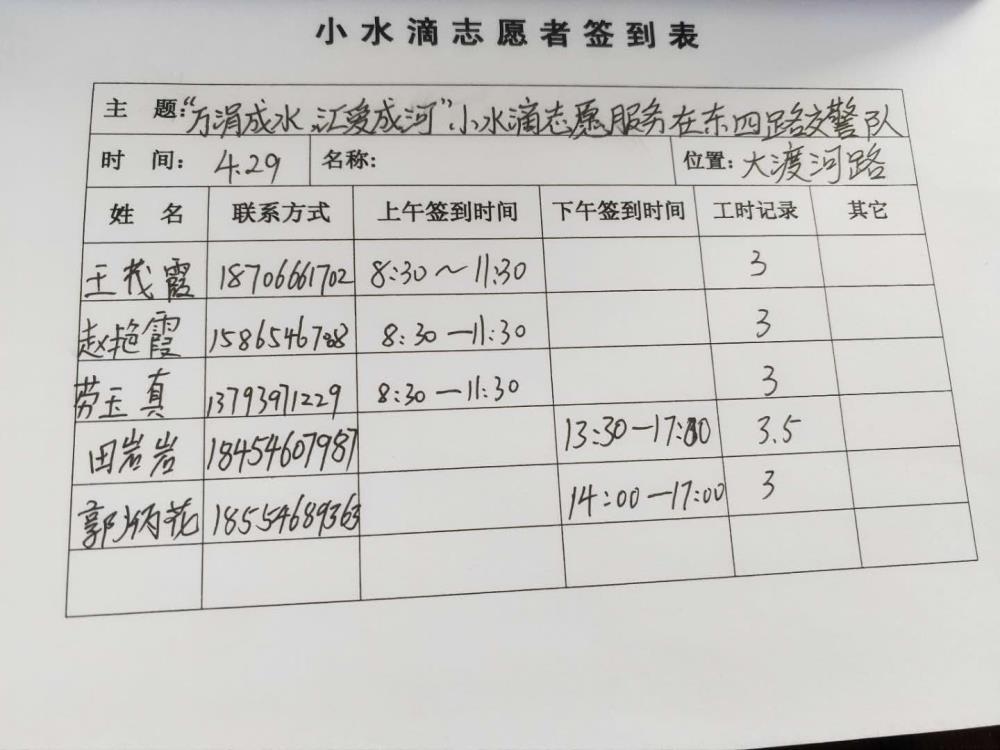 小水滴志愿者签到表
主 题:“万涓成水 汇爱成河”小水滴志愿服务在东四路交警队
时 间: 4.29 名称: 位置: 大渡河路
姓 名 联系方式 上午签到时间 下午签到时间 工时记录 其它
王茂霞 18706661702 8:30~11:30 3
赵艳霞 1586546788 8:30—11:30 3
劳玉真 13793971229 8:30—11:30 3
田岩岩 18454607987 13:30—17:00 3.5
郭炳花 18554689363 14:00—17:00 3